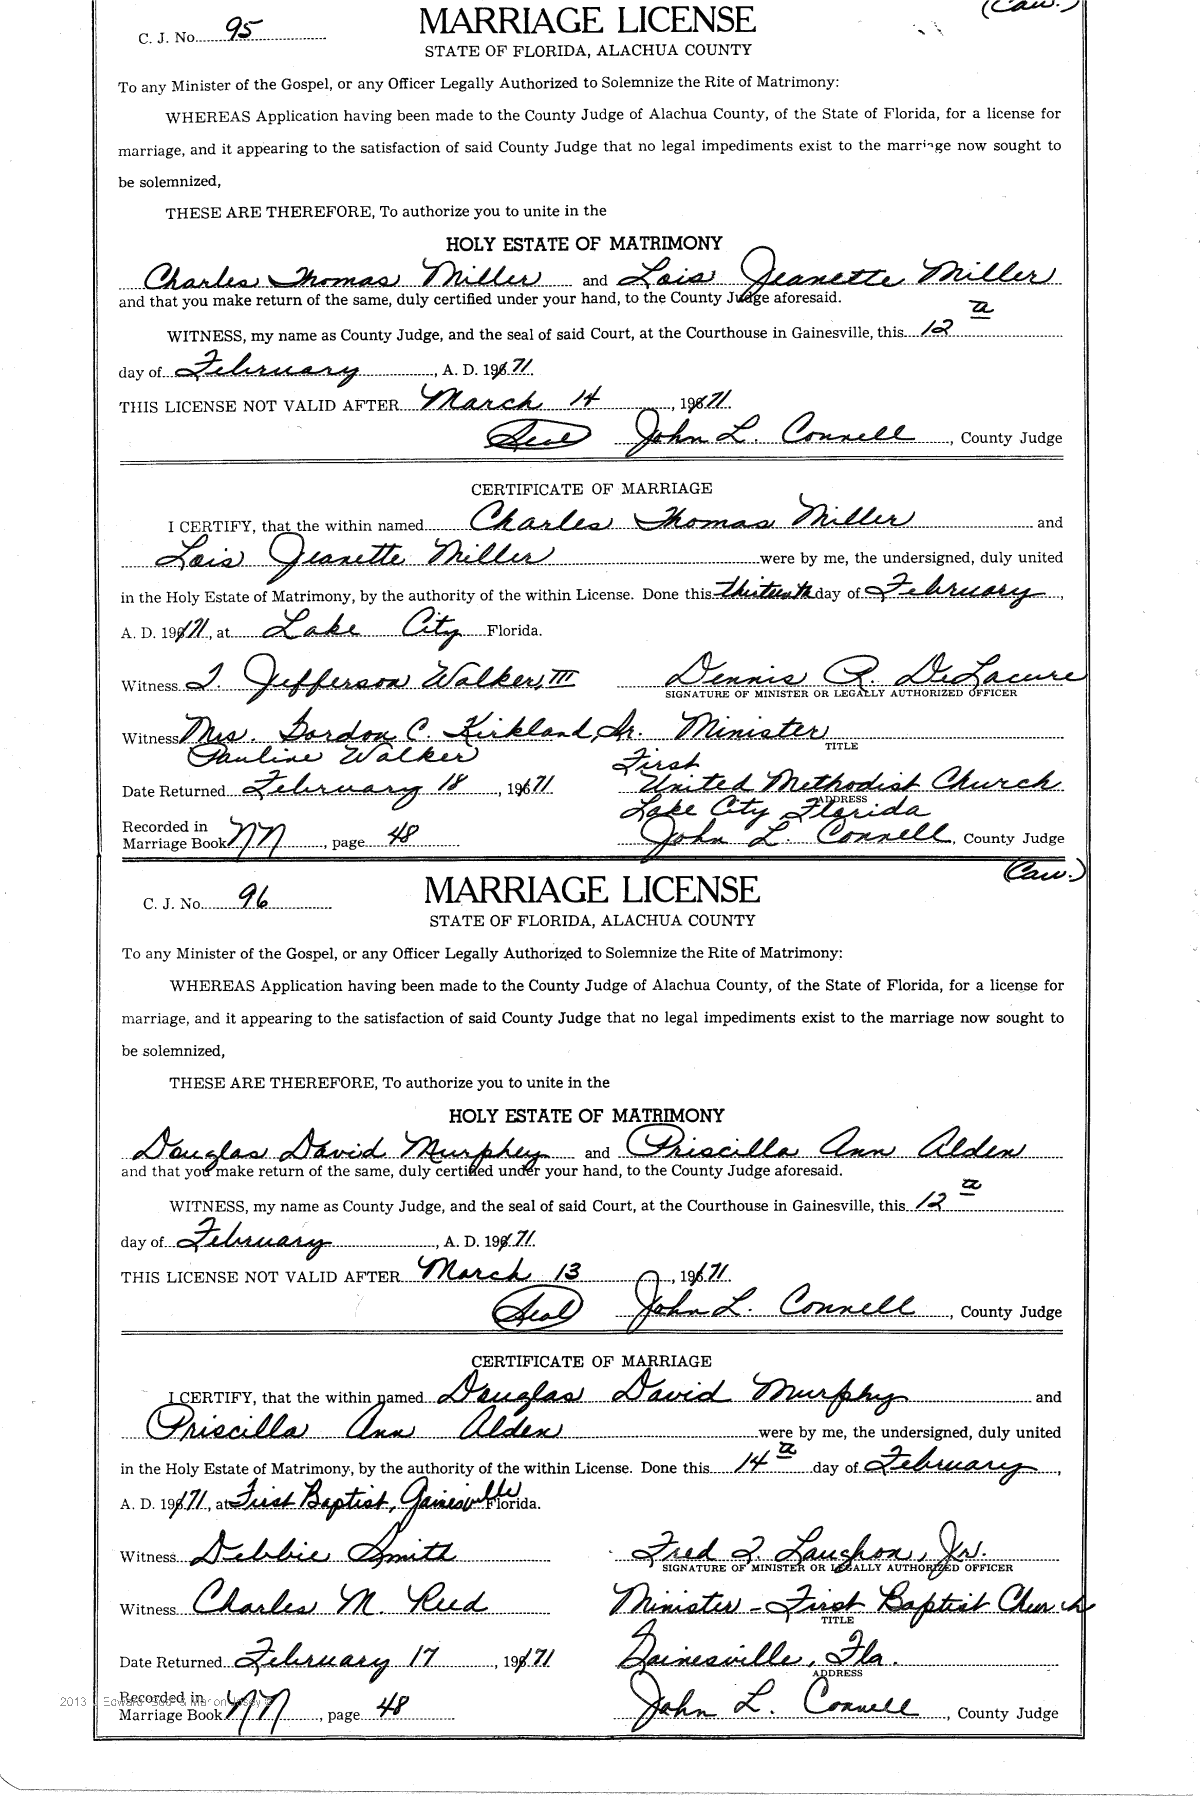 (Caw.)
C. J. No. 95
MARRIAGE LICENSE
STATE OF FLORIDA, ALACHUA COUNTY
To any Minister of the Gospel, or any Officer Legally Authorized to Solemnize the Rite of Matrimony:
WHEREAS Application having been made to the County Judge of Alachua County, of the State of Florida, for a license for
marriage, and it appearing to the satisfaction of said County Judge that no legal impediments exist to the marriage now sought to
be solemnized,
THESE ARE THEREFORE, To authorize you to unite in the
HOLY ESTATE OF MATRIMONY
Charles Thomas Miller and Lois Jeanette Miller
and that you make return of the same, duly certified under your hand, to the County Judge aforesaid.
WITNESS, my name as County Judge, and the seal of said Court, at the Courthouse in Gainesville, this 12
day of February, A. D. 1971.
THIS LICENSE NOT VALID AFTER March 14, 1971.
(Seal) John L. Connell, County Judge
CERTIFICATE OF MARRIAGE
I CERTIFY, that the within named Charles Thomas Miller and
Lois Jeanette Miller were by me, the undersigned, duly united
in the Holy Estate of Matrimony, by the authority of the within License. Done this thirteenth day of February,
A. D. 1971, at Lake City Florida.
Witness T. Jefferson Walker, III Dennis R. DeLacure
SIGNATURE OF MINISTER OR LEGALLY AUTHORIZED OFFICER
Witness Mrs. Gordon C. Kirkland, Sr. Minister
TITLE
Pauline Walker First
Date Returned February 18, 1971 United Methodist Church
ADDRESS
Lake City, Florida
Recorded in
Marriage Book NN, page 48 John L. Connell, County Judge
(Caw.)
C. J. No. 96
MARRIAGE LICENSE
STATE OF FLORIDA, ALACHUA COUNTY
To any Minister of the Gospel, or any Officer Legally Authorized to Solemnize the Rite of Matrimony:
WHEREAS Application having been made to the County Judge of Alachua County, of the State of Florida, for a license for
marriage, and it appearing to the satisfaction of said County Judge that no legal impediments exist to the marriage now sought to
be solemnized,
THESE ARE THEREFORE, To authorize you to unite in the
HOLY ESTATE OF MATRIMONY
Douglas David Murphey and Priscilla Ann Alden
and that you make return of the same, duly certified under your hand, to the County Judge aforesaid.
WITNESS, my name as County Judge, and the seal of said Court, at the Courthouse in Gainesville, this 12
day of February, A. D. 1971.
THIS LICENSE NOT VALID AFTER March 13, 1971.
(Seal) John L. Connell, County Judge
CERTIFICATE OF MARRIAGE
I CERTIFY, that the within named Douglas David Murphy and
Priscilla Ann Alden were by me, the undersigned, duly united
in the Holy Estate of Matrimony, by the authority of the within License. Done this 14 day of February,
A. D. 1971, at First Baptist, Gainesville Florida.
Witness Debbie Smith Fred T. Laughon, Jr.
SIGNATURE OF MINISTER OR LEGALLY AUTHORIZED OFFICER
Witness Charles M. Reed Minister - First Baptist Church
TITLE
Date Returned February 17, 1971 Gainesville, Fla.
ADDRESS
2013
Recorded in
Marriage Book NN, page 48 John L. Connell, County Judge